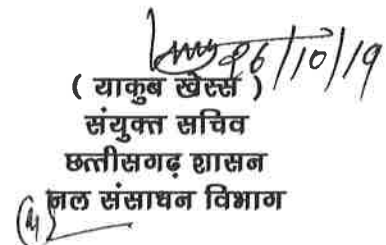 26/10/19
( याकुब खेस्स )
संयुक्त सचिव
छत्तीसगढ़ शासन
जल संसाधन विभाग